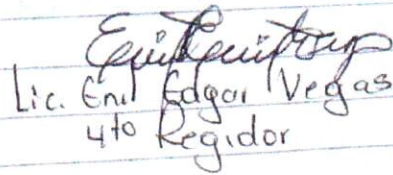 Lic. Eril Edgar Vegas
4to Regidor